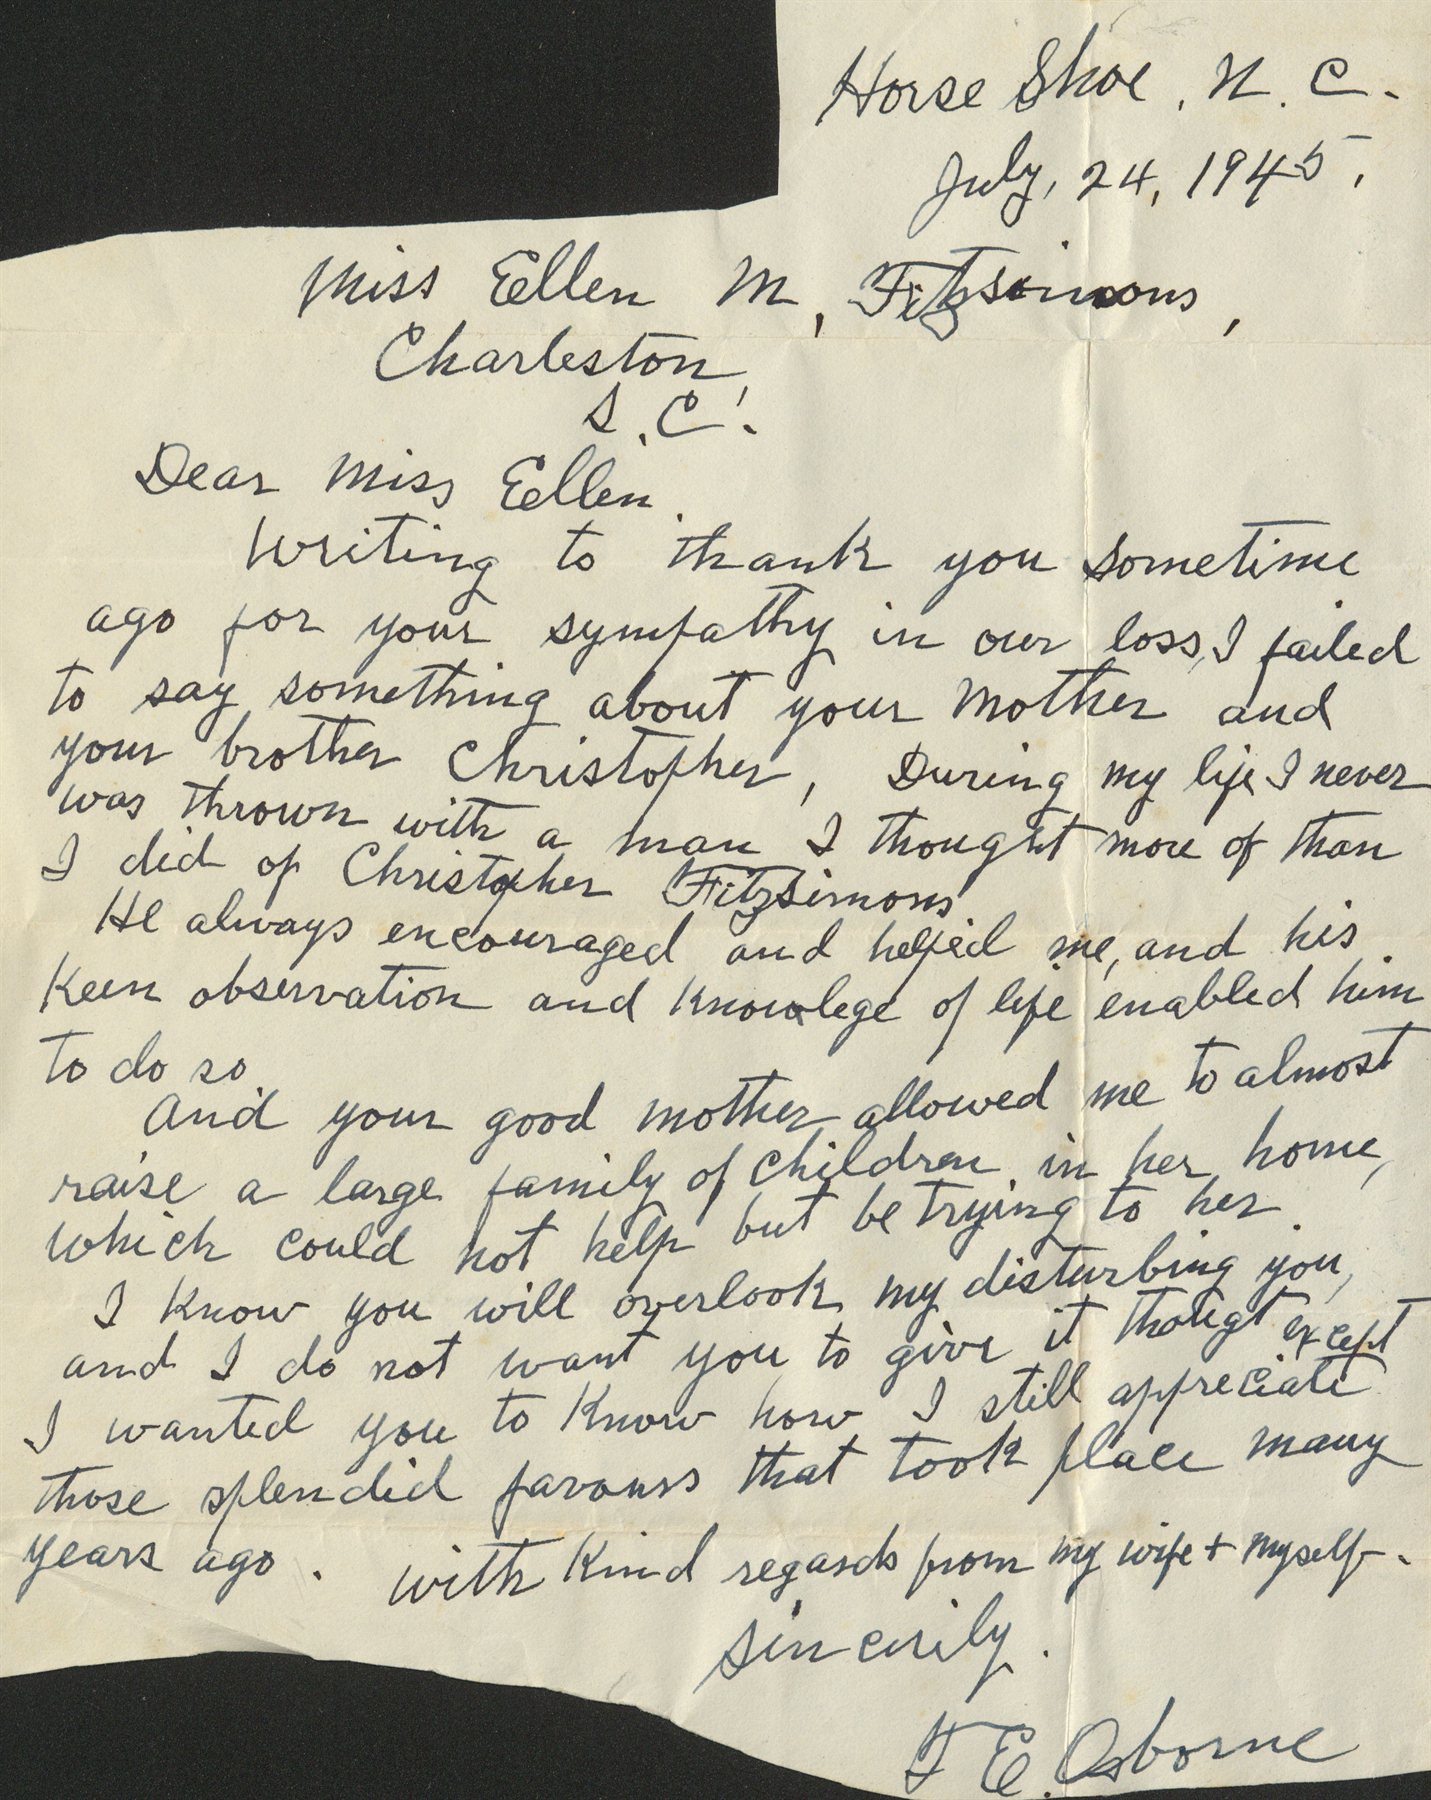 Horse Shoe, N. C.
July, 24, 1945,
Miss Eellen M, Fitzsimons,
Charleston,
S. C.
Dear Miss Eellen.
Writing to thank you sometime
ago for your sympathy in our loss, I failed
to say something about your Mother and
your brother Christopher, During my life I never
was thrown with a man I thought more of than
I did of Christopher Fitzsimons
He always encouraged and helped me, and his
Keen observation and Knowlege of life enabled him
to do so.
And your good mother allowed me to almost
raise a large family of children in her home,
which could not help but be trying to her.
I Know you will overlook my disturbing you,
and I do not want you to give it thougt except
I wanted you to Know how I still appreciate
those splendid favours that took place many
years ago. with Kind regards from my wife + myself.
Sincerily.
F E. Osborne